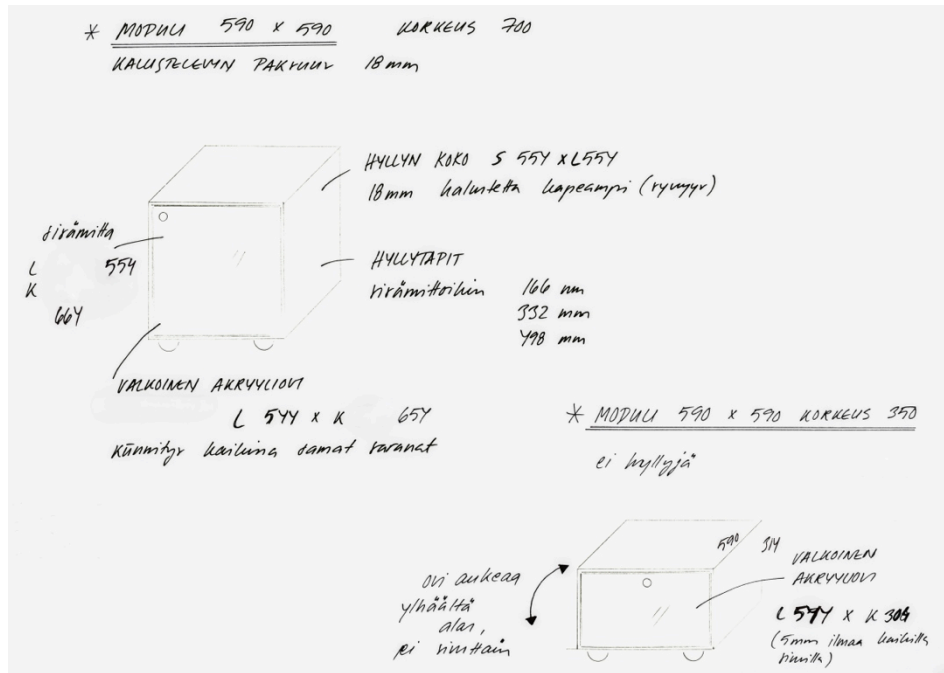 * MODULI 590 x 590 KORKEUS 700
KALUSTELEVYN PAKSUUS 18 mm
HYLLYN KOKO S 554 x L 554
18mm kalustetta kapeampi (syvyys)
sisämitta
L 554
K
664
HYLLYTAPIT
sisämittoihin 166 mm
332 mm
498 mm
VALKOINEN AKRYYLIOVI
L 544 x K 654
Kiinnitys kaikissa samat saranat
* MODULI 590 x 590 KORKEUS 350
ei hyllyjä
590 314
VALKOINEN
AKRYYLIOVI
ovi aukeaa
ylhäältä
alas,
ei sivuttain
L 544 x K 304
(5mm ilmaa kaikilla
sivuilla)